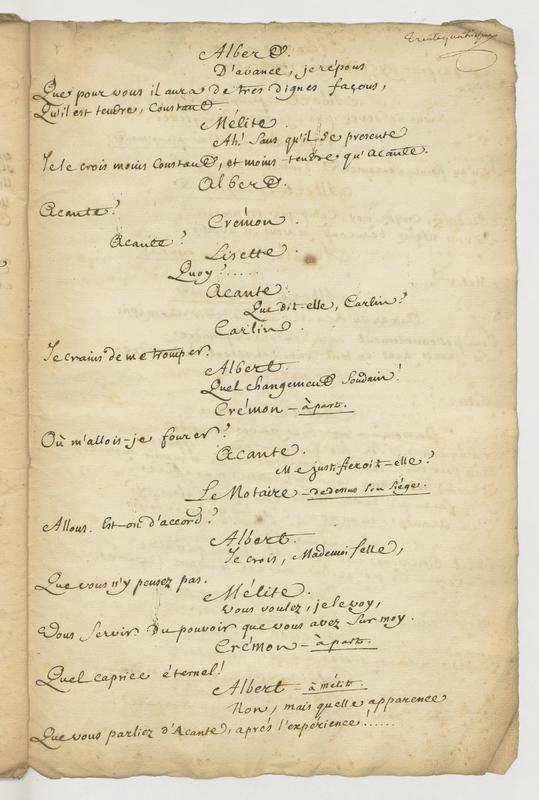 Trentequatriesme
Albert.
D'avance, je répons
Que pour vous il aura de tres dignes façons,
Qu'il est tendre, Constant.
Mélite.
Ah! Sans qu'il se presente
Je le crois moins Constant, et moins tendre qu'Acante.
Albert.
Acante?
Crémon.
Acante?
Lisette.
Quoy?.....
Acante.
Que dit-elle, Carlin?
Carlin.
Je crains de me tromper.
Albert.
Quel changement Soudain!
Crémon - à part.
Où m'allois-je fourer?
Acante.
Me justifieroit-elle?
Le Notaire - de dessus son Siége.
Allons. Est-on d'accord?
Albert.
Je crois, Mademoiselle,
Que vous n'y pensez pas.
Mélite.
Vous voulez, je le voy,
Vous Servir du pouvoir que vous avez Sur moy.
Crémon - à part.
Quel caprice éternel!
Albert - à mélite.
Non, mais quelle apparence
Que vous parliez d'Acante, aprés l'expérience!......